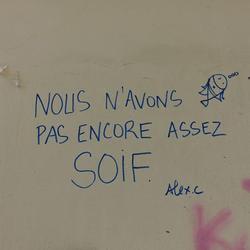 NOUS N'AVONS
PAS ENCORE ASSEZ
SOIF.
Alex.c